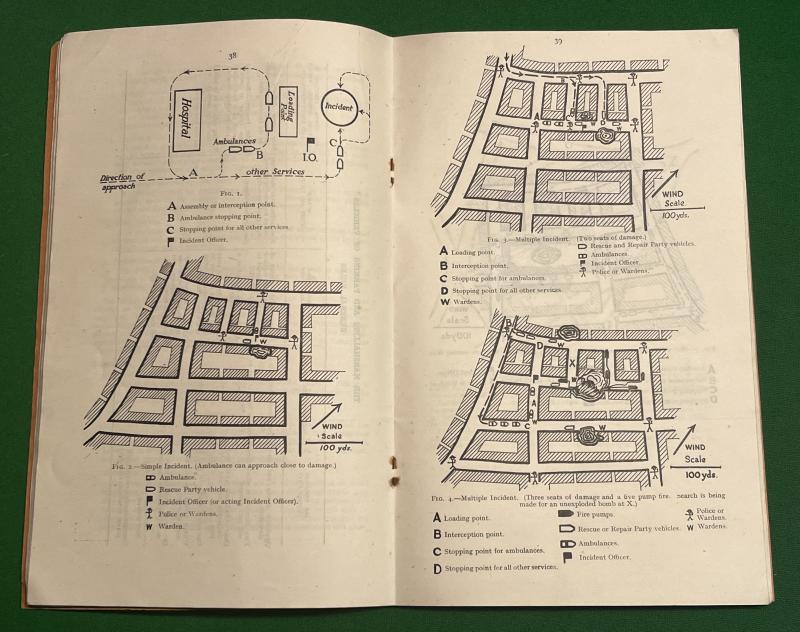 38
Hospital
Loading
Point
Incident
Ambulances
B
I.O.
C
Direction of
approach
A
other Services
FIG. 1.
A Assembly or interception point.
B Ambulance stopping point.
C Stopping point for all other services
Incident Officer.
W
WIND
Scale
100 yds.
FIG. 2.—Simple Incident. (Ambulance can approach close to damage.)
Ambulance.
Rescue Party vehicle.
Incident Officer (or acting Incident Officer).
Police or Wardens.
W Warden.
39
B
A
C
D
W
W
WIND
Scale
100 yds.
FIG. 3.—Multiple Incident. (Two seats of damage.)
A Loading point.
B Interception point.
C Stopping point for ambulances.
D Stopping point for all other services.
W Wardens.
Rescue and Repair Party vehicles.
Ambulances.
Incident Officer.
Police or Wardens.
B
D
W
X
W
B
A
W
C
W
WIND
Scale
100 yds.
FIG. 4.—Multiple Incident. (Three seats of damage and a five pump fire. Search is being
made for an unexploded bomb at X.)
A Loading point.
B Interception point.
C Stopping point for ambulances.
D Stopping point for all other services.
Fire pumps.
Rescue or Repair Party vehicles.
Ambulances.
Incident Officer.
Police or
Wardens.
W Wardens.